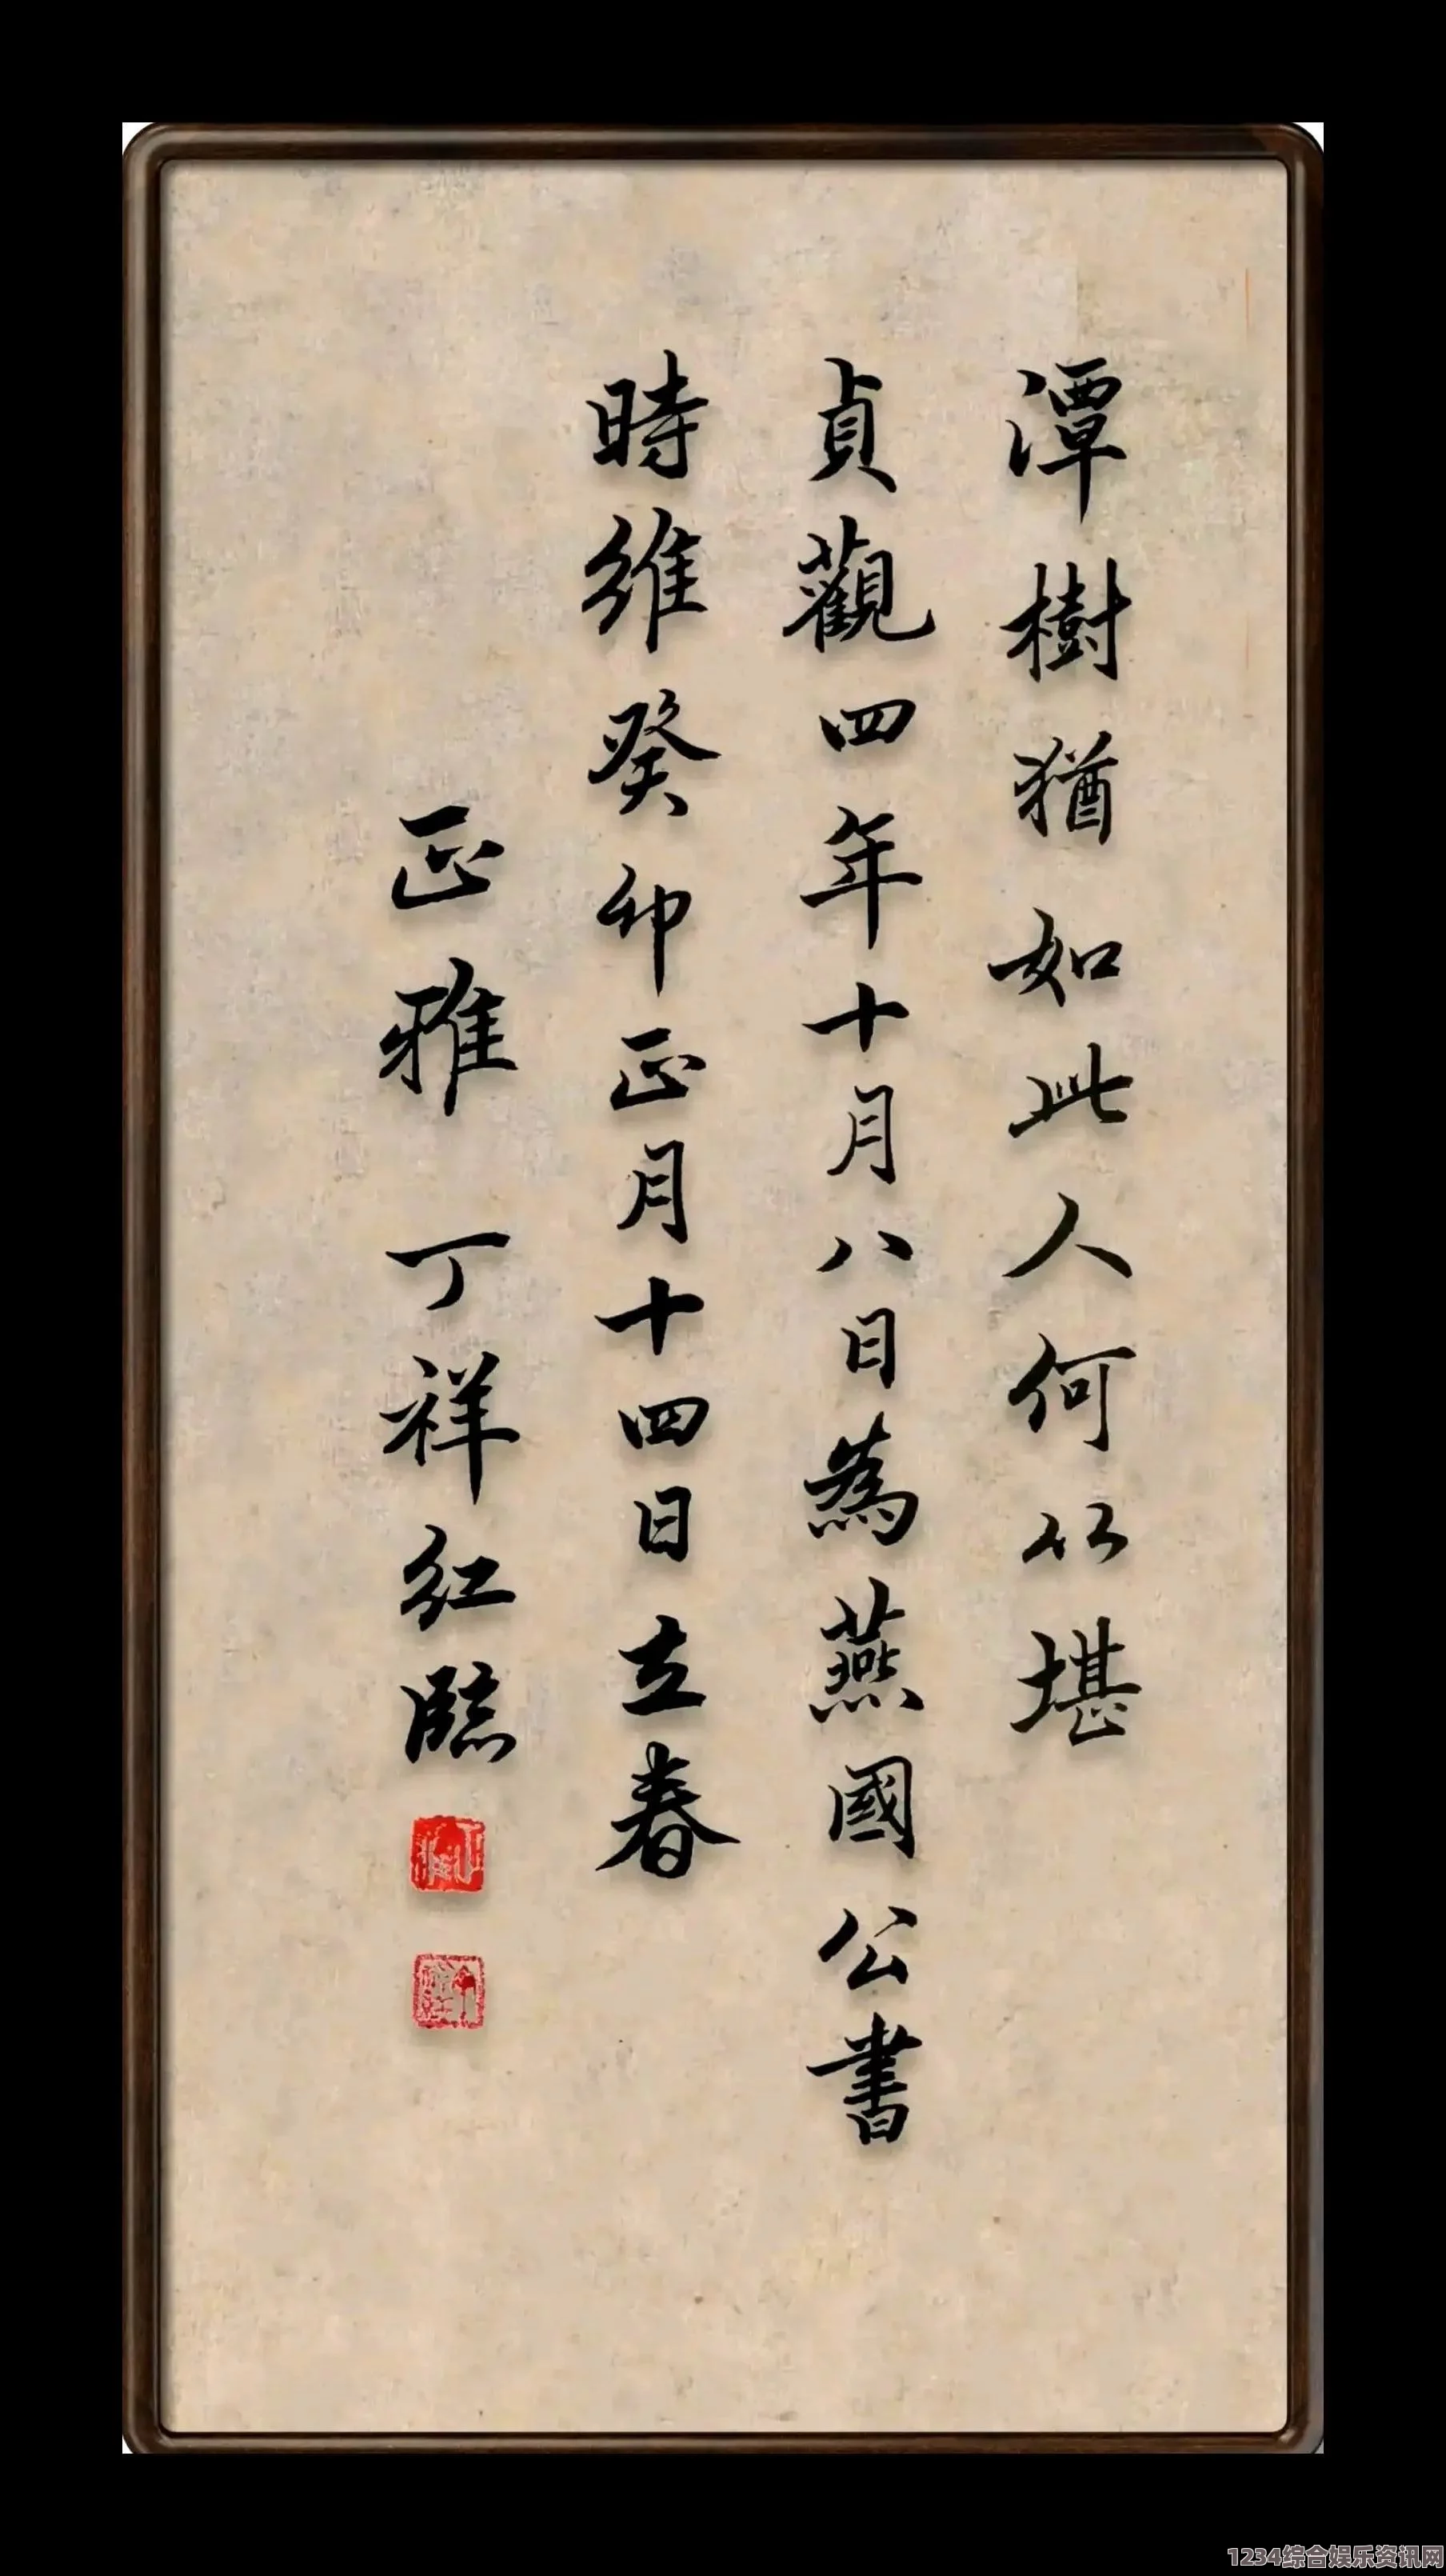 潭樹猶如此人何以堪
貞觀四年十月八日為燕國公書
時維癸卯正月十四日立春
正雅 丁祥红臨
1234综合娱乐资讯网